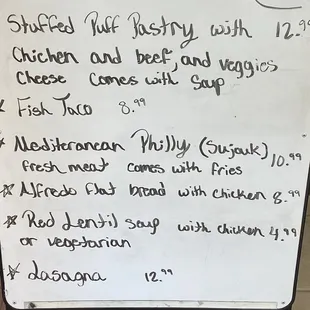 Stuffed Puff Pastry with 12.99
Chichen and beef, and veggies
Cheese comes with Soup
Fish Taco 8.99
Mediteranean Philly (Sujouk) 10.99
fresh meat comes with fries
Alfredo flat bread with chicken 8.99
Red Lentil soup with chicken 4.99
or vegetarian
Lasagna 12.99